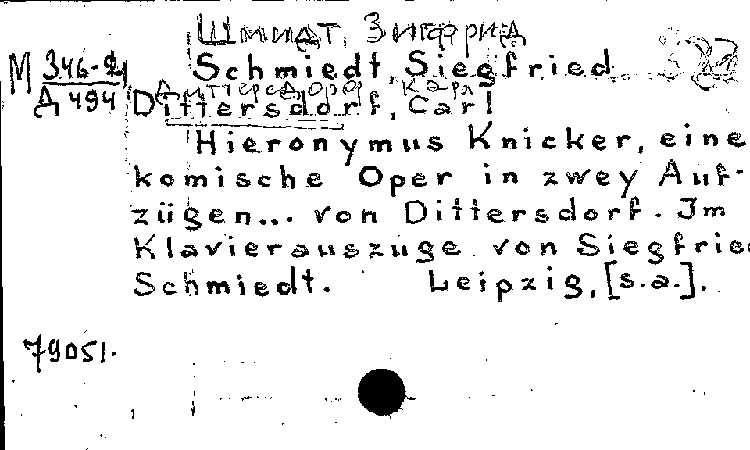 Шмидт, Зигфрид
Schmiedt, Siegfried
М 346-2
Д 494
Диттерсдорф, Карл
Dittersdorf, Carl
Hieronymus Knicker, eine
komische Oper in zwey Auf-
zügen... von Dittersdorf. Im
Klavierauszuge von Siegfried
Schmiedt. Leipzig, [s.a.].
79051.